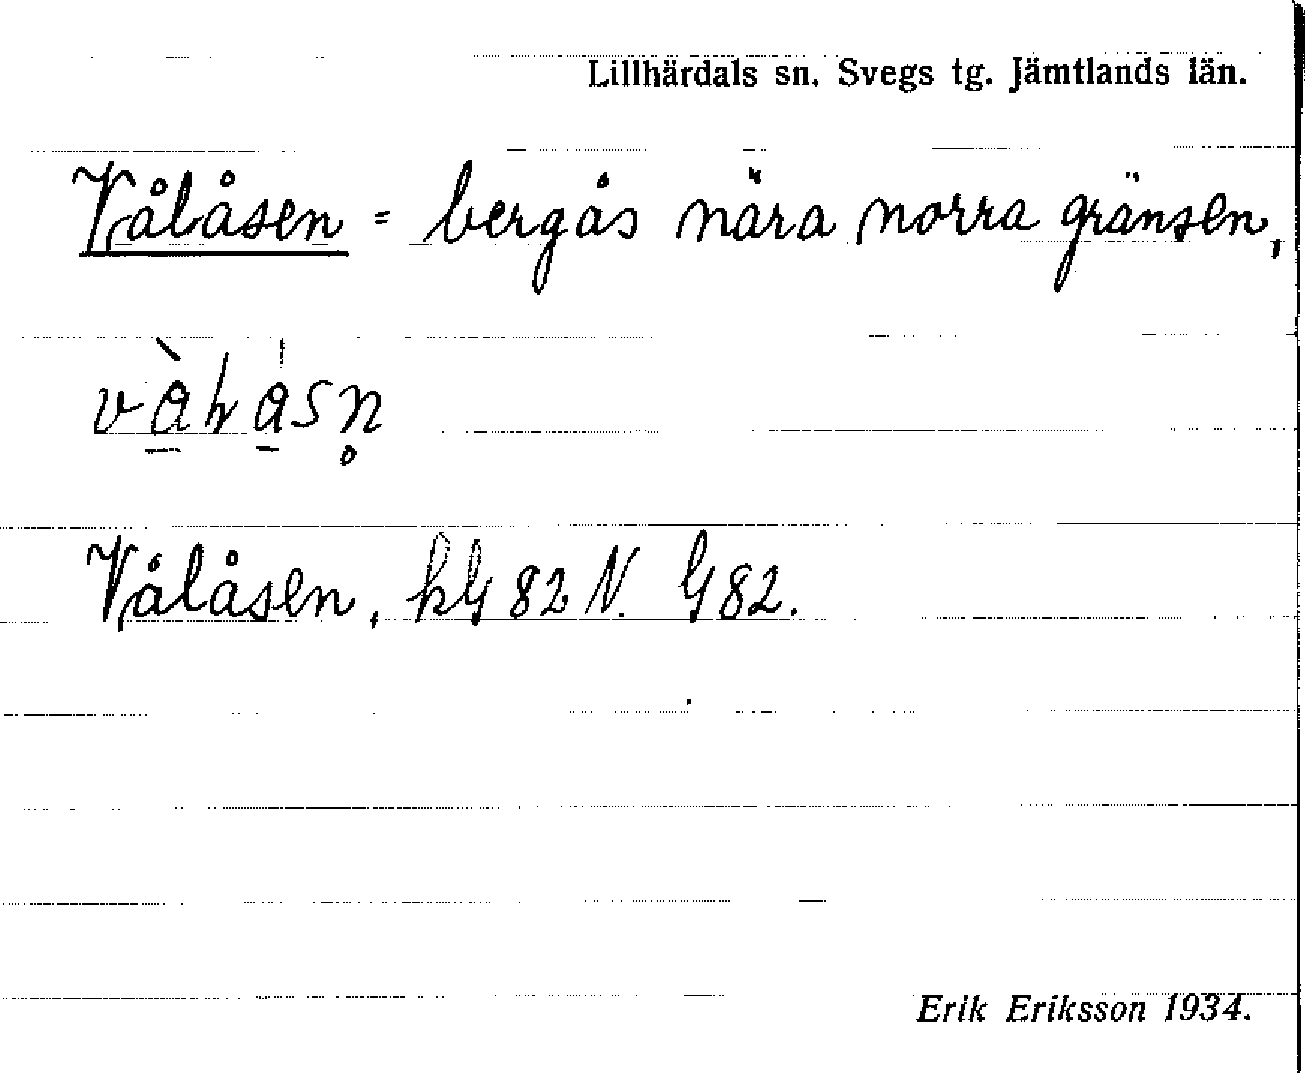 Lillhärdals sn. Svegs tg. Jämtlands län.
Vålåsen = bergås nära norra gränsen,
Vålåsen, kG 82 N. G 82.
Erik Eriksson 1934.